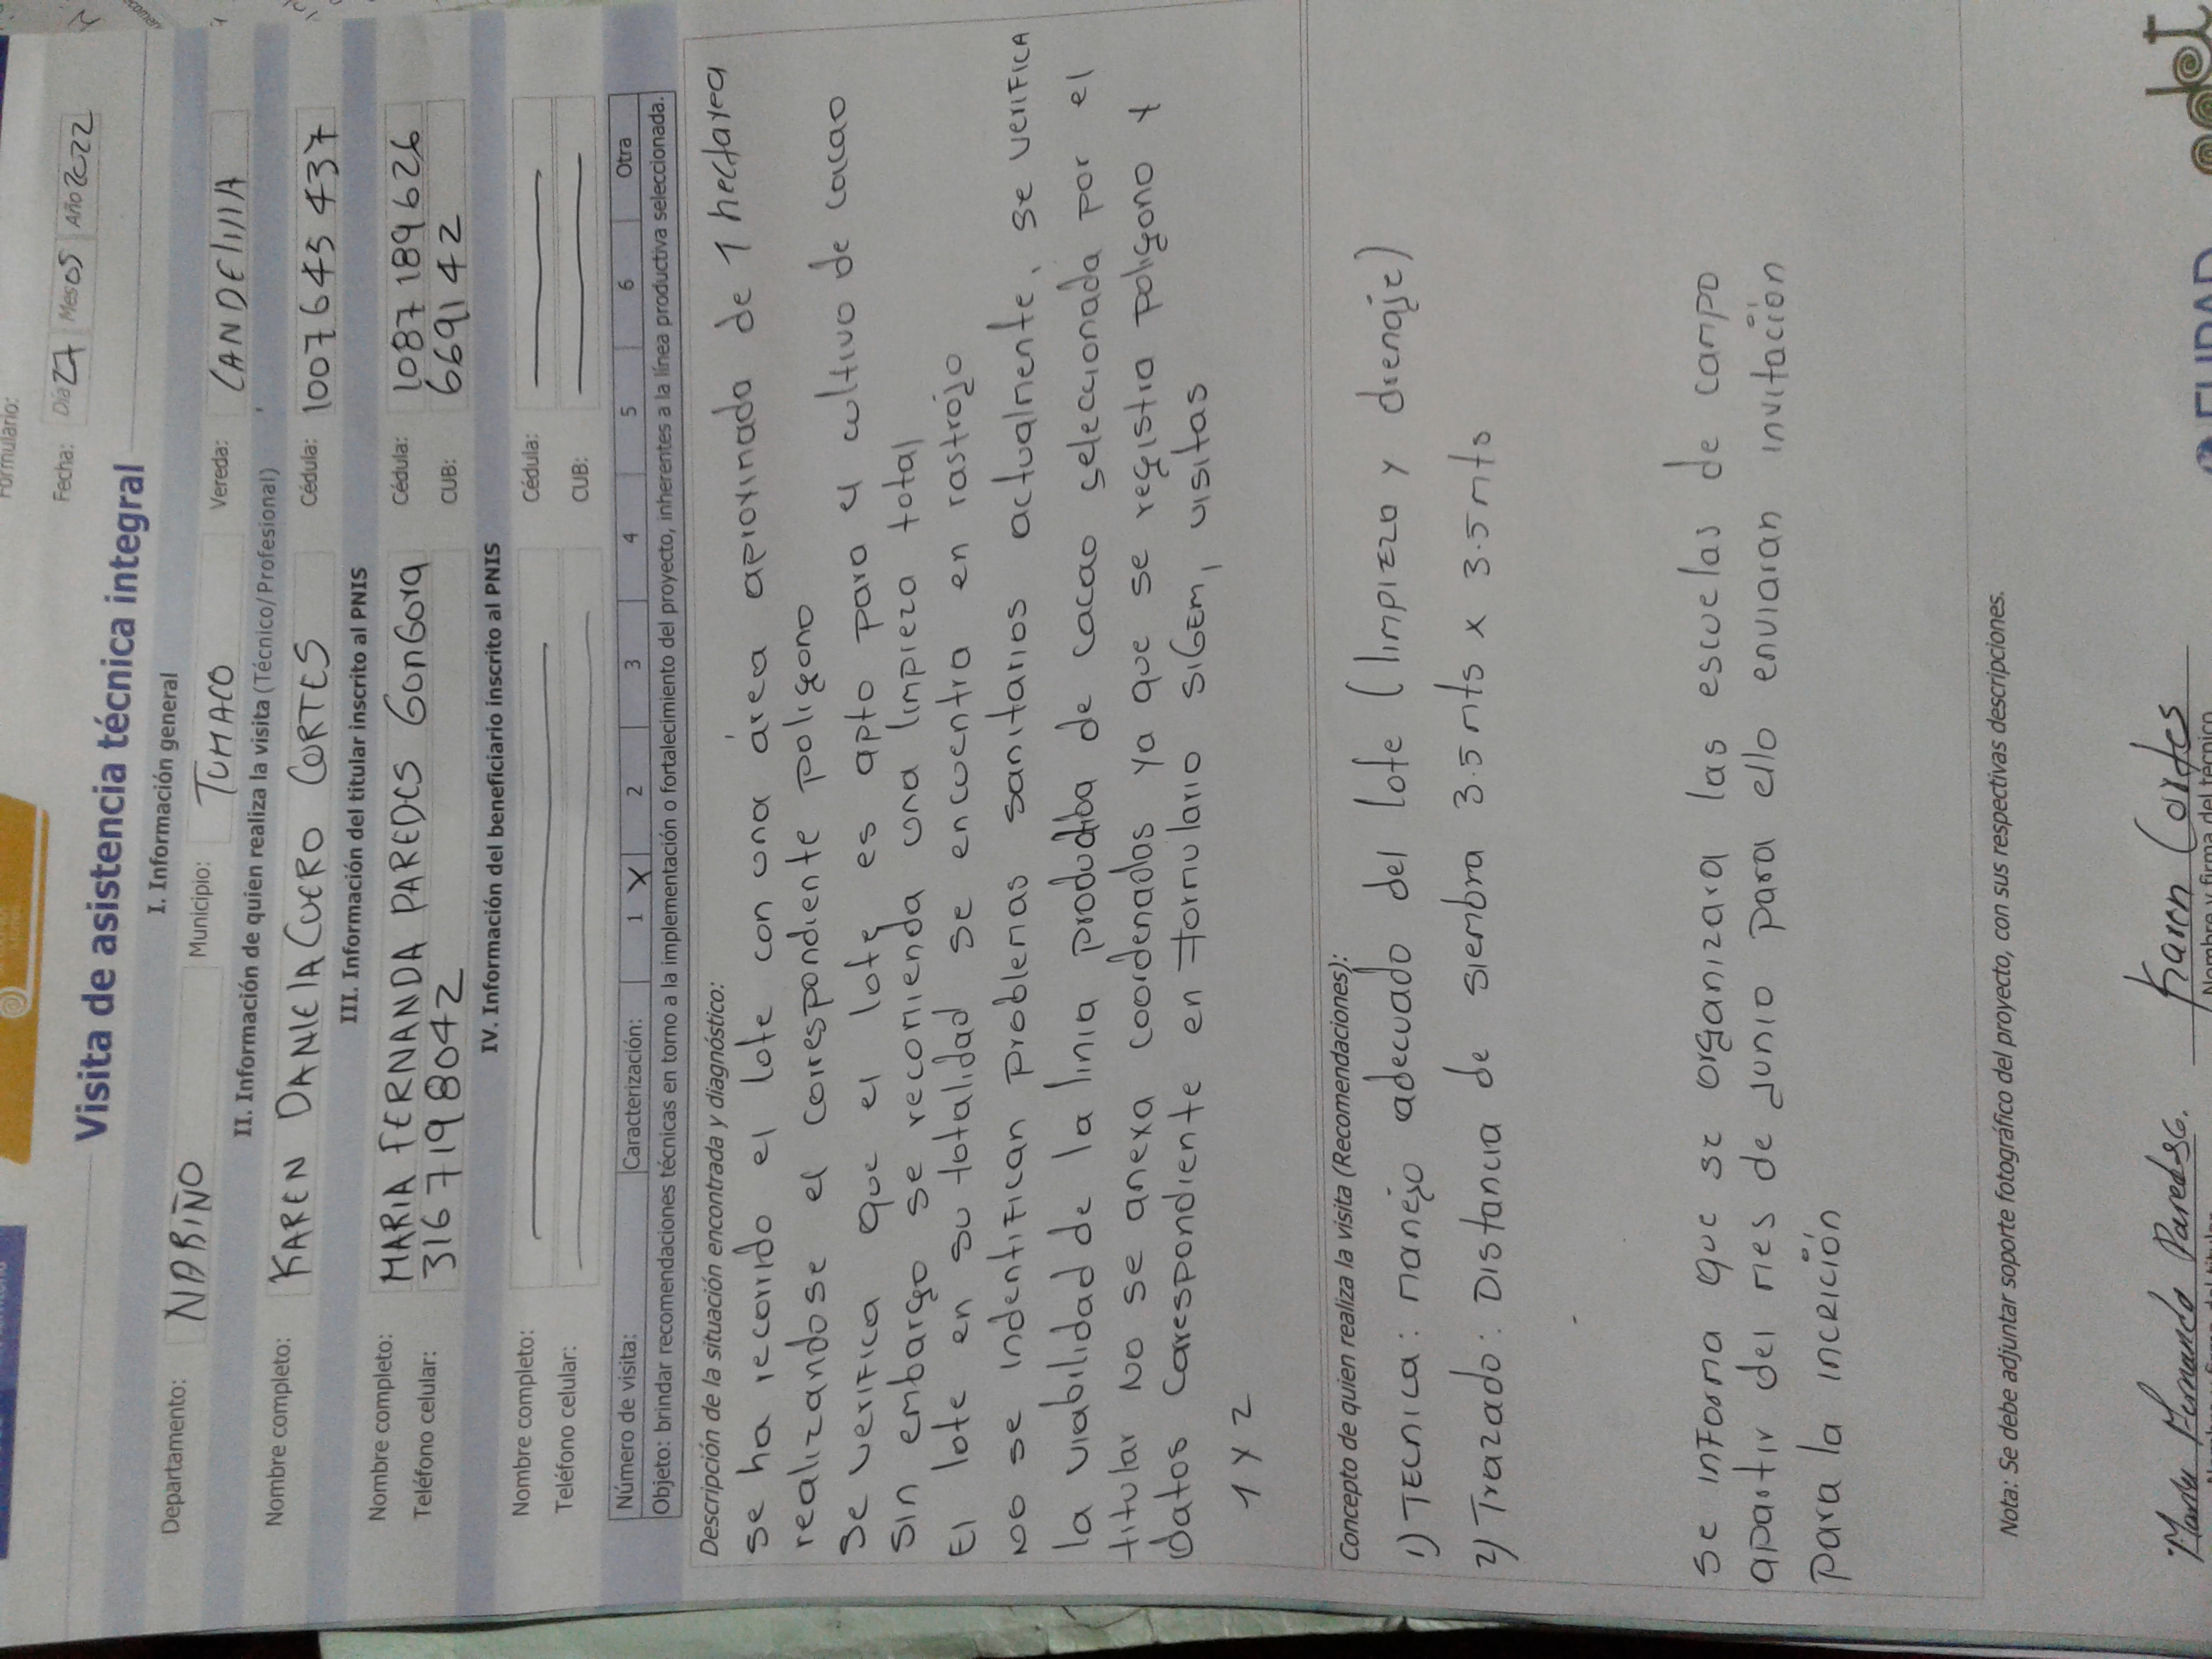 Formulario:
Fecha: Día 27 Mes 05 Año 2022
Visita de asistencia técnica integral
I. Información general
Departamento: NARIÑO Municipio: TUMACO Vereda: CANDElIIIA
II. Información de quien realiza la visita (Técnico/Profesional)
Nombre completo: KAREN DANIElA CUERO CORTES Cédula: 1007645437
III. Información del titular inscrito al PNIS
Nombre completo: MARIA FERNANDA PAREDES GONGORA Cédula: 1087189626
Teléfono celular: 3167198042 CUB: 669142
IV. Información del beneficiario inscrito al PNIS
Nombre completo: Cédula:
Teléfono celular: CUB:
Número de visita: Caracterización: 1 X 2 3 4 5 6 Otra
Objeto: brindar recomendaciones técnicas en torno a la implementación o fortalecimiento del proyecto, inherentes a la línea productiva seleccionada.
Descripción de la situación encontrada y diagnóstico:
se ha recorrido el lote con una área aproximada de 1 hectarea
realizandose el correspondiente poligono
se verifica que el lote es apto para el cultivo de cacao
sin embargo se recomienda una limpieza total
El lote en su totalidad se encuentra en rastrojo
no se indentifican problemas sanitarios actualmente, se verifica
la viabilidad de la linia productiba de cacao seleccionada por el
titular no se anexa coordenadas ya que se registra poligono y
datos carespondiente en formulario sigem, visitas
1 y 2
Concepto de quien realiza la visita (Recomendaciones):
1) Tecnica: manejo adecuado del lote (limpieza y drenaje)
2) Trazado: Distancia de siembra 3.5 mts x 3.5 mts
se informa que se organizara las escuelas de campo
apartir del mes de junio para ello enviaran invitación
para la incrición
Nota: Se debe adjuntar soporte fotográfico del proyecto, con sus respectivas descripciones.
Maria Fernanda Paredes G. Karen Cortes